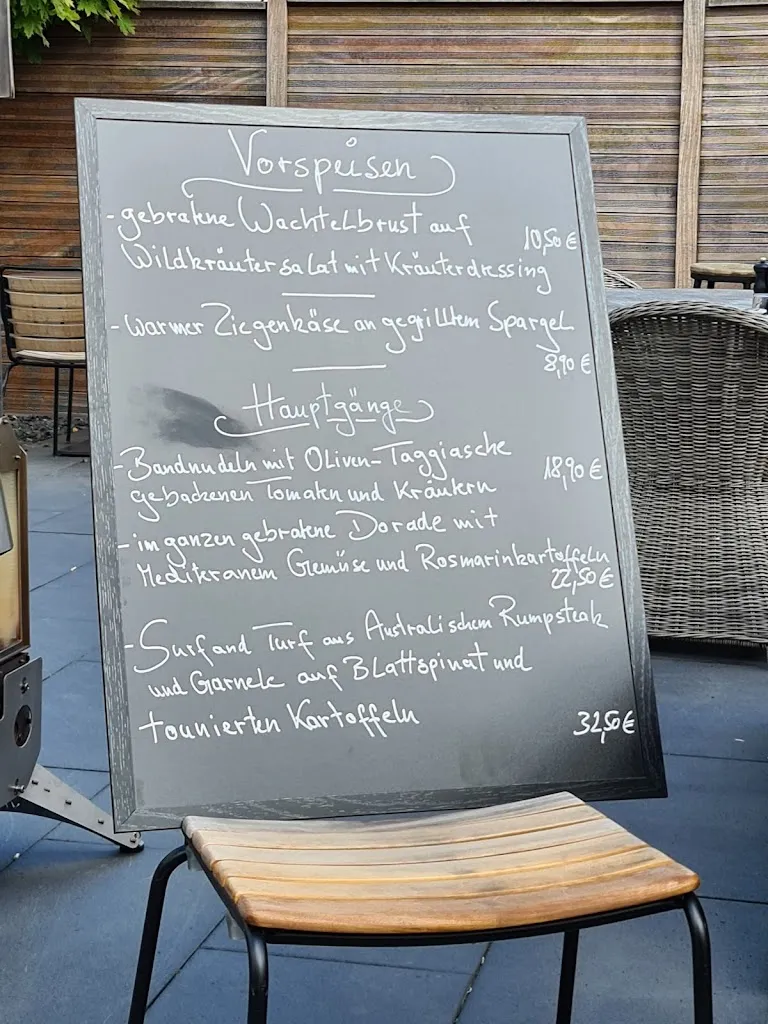 Vorspeisen
- gebratene Wachtelbrust auf
10,50 €
Wildkräutersalat mit Kräuterdressing
- warmer Ziegenkäse an gegrilltem Spargel
8,90 €
Hauptgänge
- Bandnudeln mit Oliven-Taggiasche
18,90 €
gebackenen Tomaten und Kräutern
- im ganzen gebratene Dorade mit
Meditkranem Gemüse und Rosmarinkartoffeln
22,50 €
- Surf and Turf aus Australischem Rumpsteak
und Garnele auf Blattspinat und
tounierten Kartoffeln
32,50 €